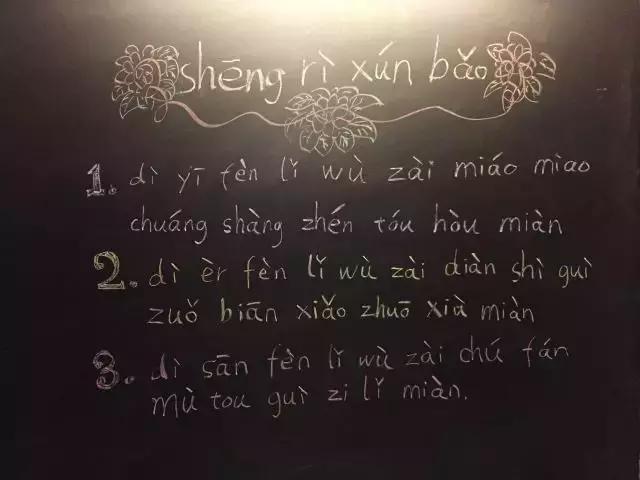 shēng rì xún bǎo
1. dì yī fèn lǐ wù zài miáo miao
chuáng shàng zhén tóu hòu miàn
2. dì èr fèn lǐ wù zài diàn shì guì
zuǒ biān xiǎo zhuō xià miàn
3. dì sān fèn lǐ wù zài chú fán
mù tou guì zi lǐ miàn.